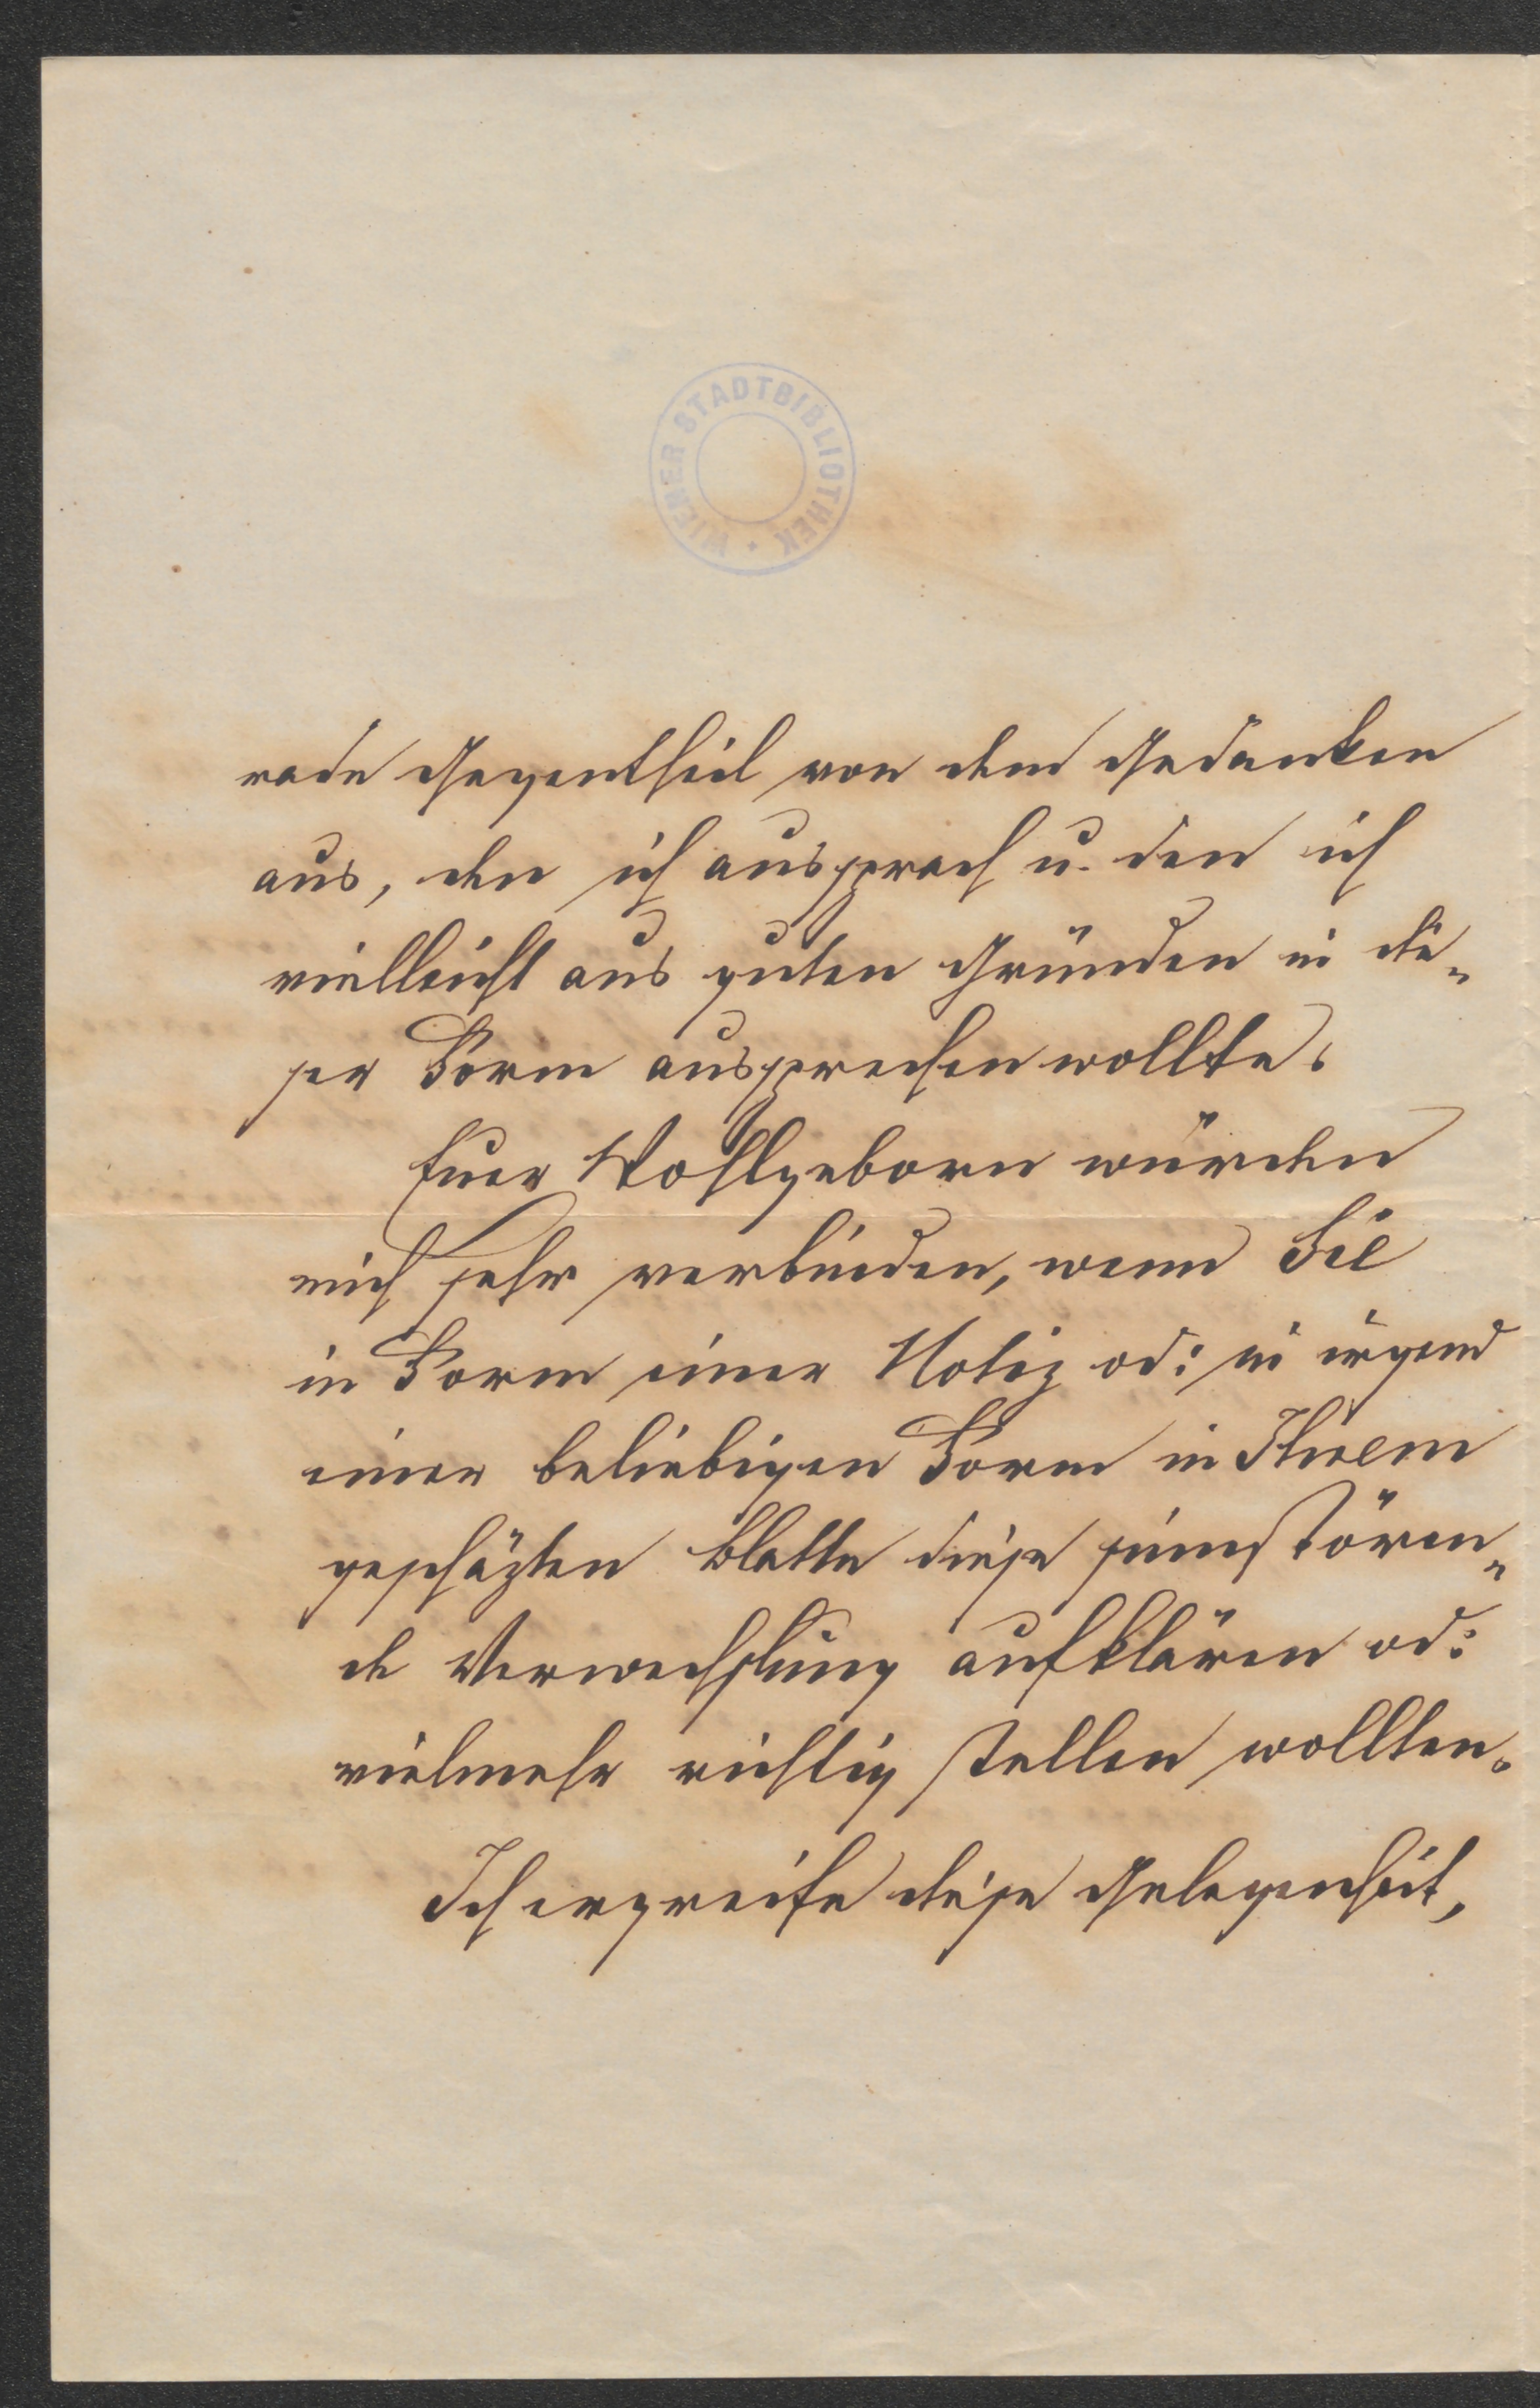 WIENER STADTBIBLIOTHEK
rade Gegentheil von dem Gedanken
aus, den ich aussprach u. den ich
vielleicht aus guten Gründen in die„
ser Form aussprechen wollte.
Euer Wohlgeborn würden
mich sehr verbinden, wenn Sie
in Form einer Notiz od: in irgend
einer beliebigen Form in Ihrem
geschäzten Blatte diese sinnstören„
de Verwechslung aufklären od:
vielmehr richtig stellen wollten.
Ich ergreife diese Gelegenheit,